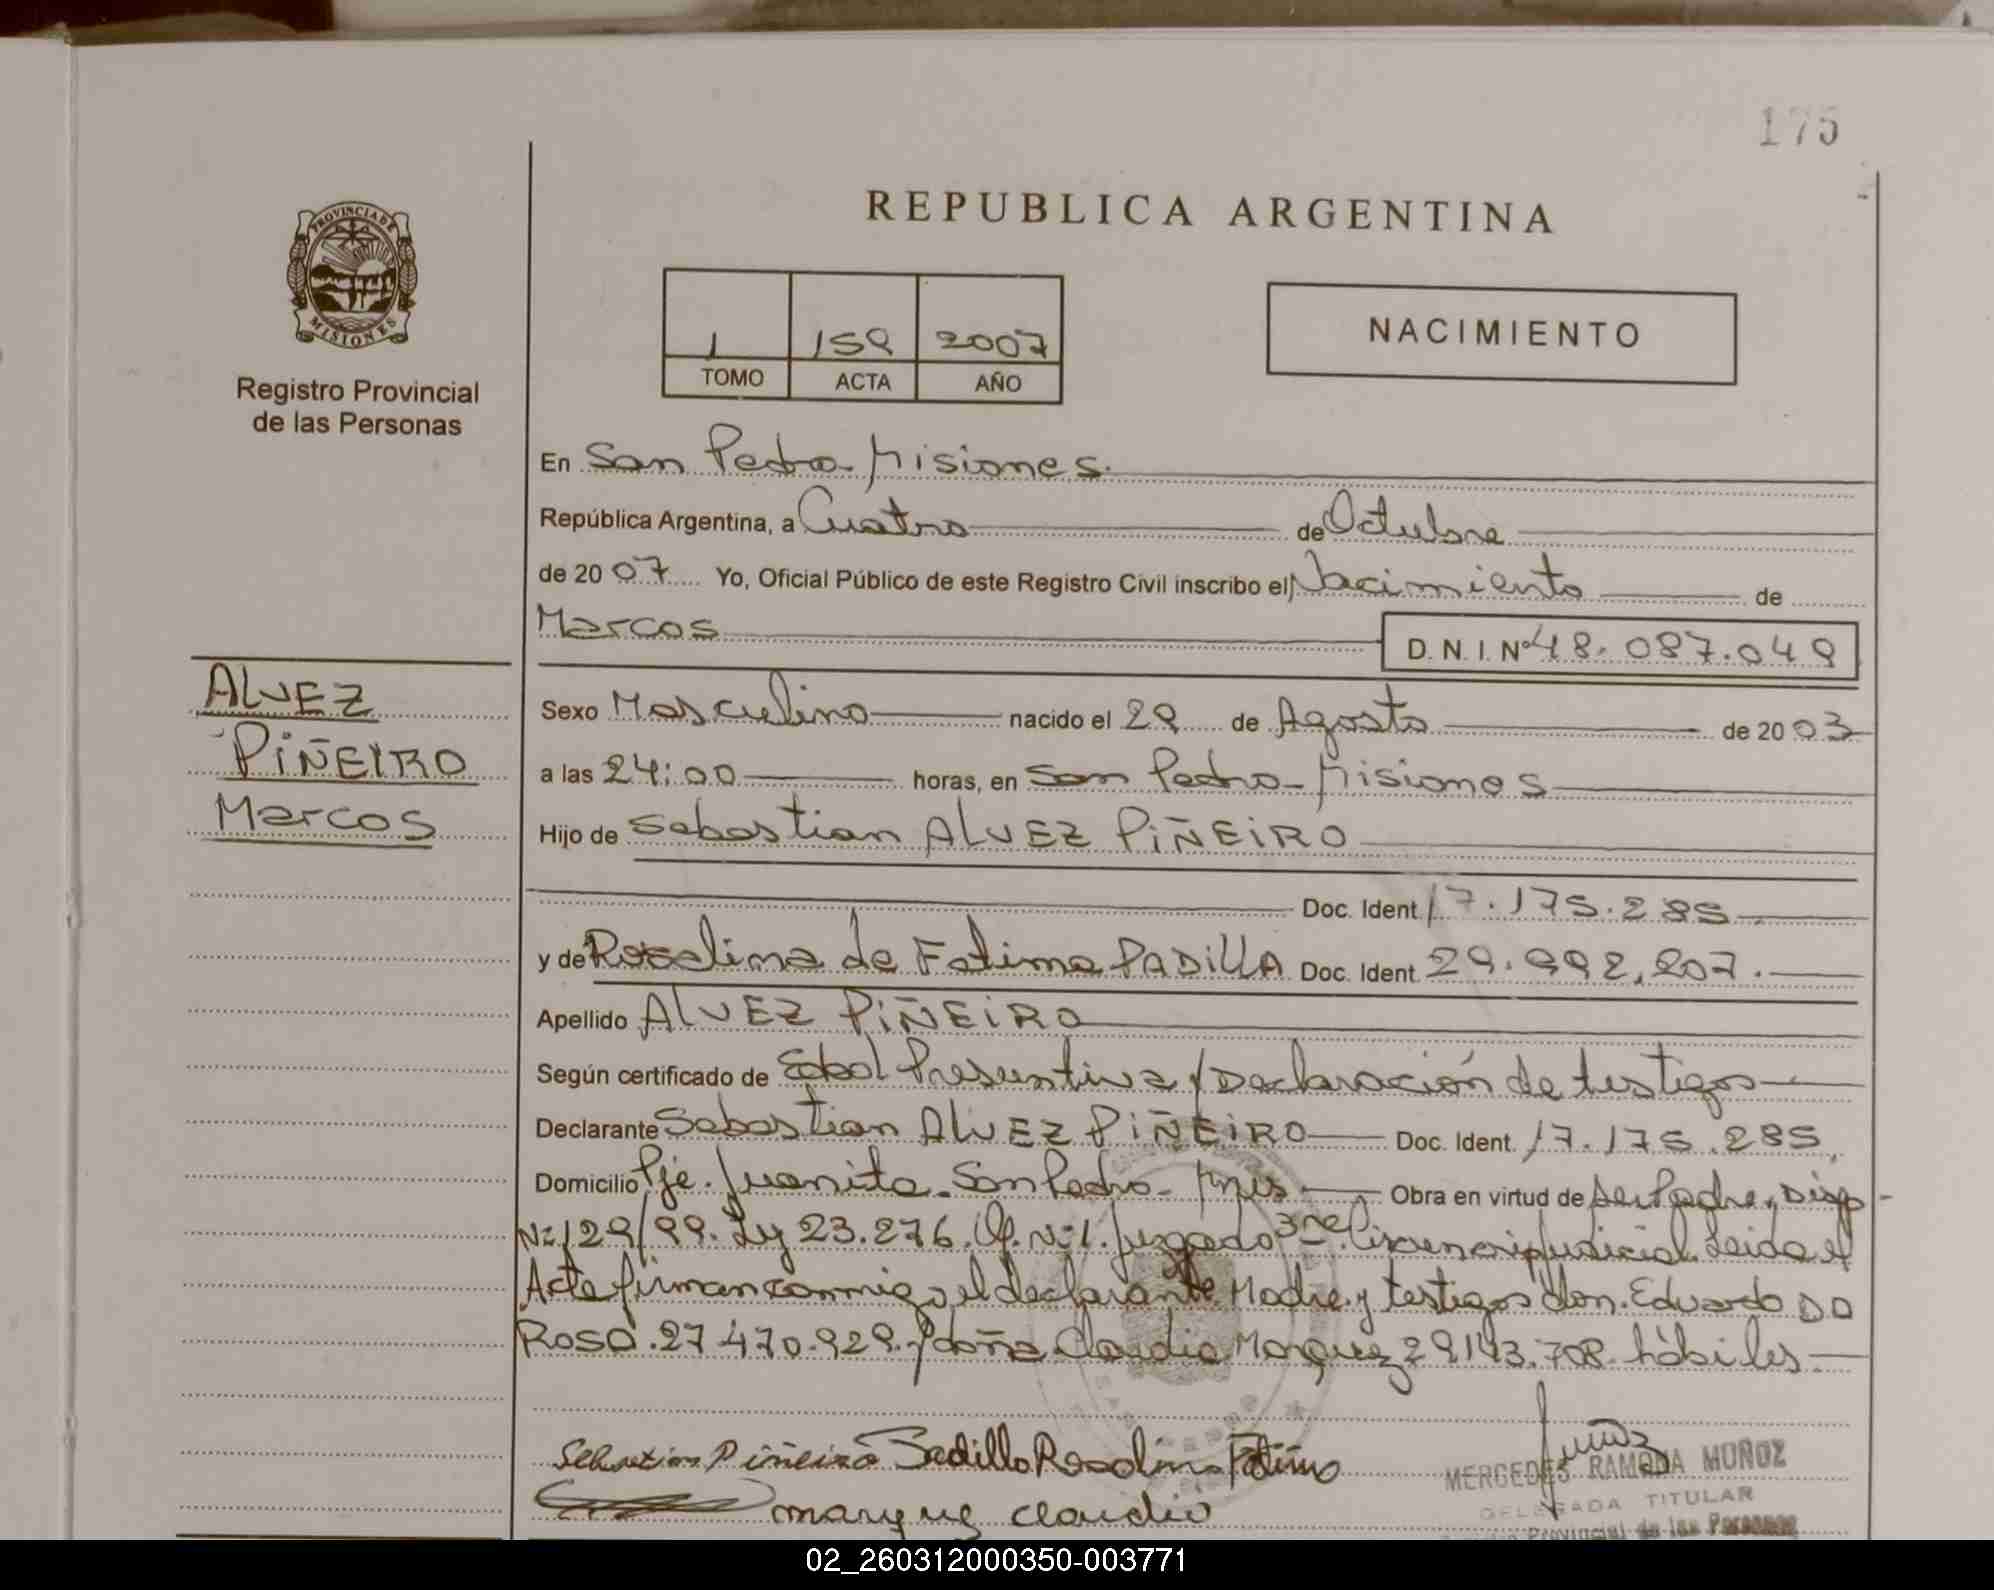 175
REPUBLICA ARGENTINA
PROVINCIA DE
MISIONES
Registro Provincial
de las Personas
1 159 2007
TOMO ACTA AÑO
NACIMIENTO
En San Pedro - Misiones.
República Argentina, a Cuatro de Octubre
de 20 07 Yo, Oficial Público de este Registro Civil inscribo el Nacimiento de
Marcos D. N. I. Nº 48.087.049
ALVEZ
PIÑEIRO
Marcos
Sexo Masculino nacido el 29 de Agosto de 20 03
a las 24:00 horas, en San Pedro - Misiones
Hijo de Sebastian ALVEZ PIÑEIRO
Doc. Ident. 17.175.285
y de Roselina de Fatima PADILLA Doc. Ident. 29.992.207.
Apellido ALVEZ PIÑEIRO
Según certificado de Edad Presuntiva y Declaración de testigos
Declarante Sebastian ALVEZ PIÑEIRO Doc. Ident. 17.175.285
Domicilio Pje. Juanita - San Pedro - Mnes Obra en virtud de ser Padre, Disp
Nº 129/99. Ley 23.276. Of. Nº 1. Juzgado 3ra Judicial. Leida el
Acta firman conmigo el declarante. Madre y testigos don. Eduardo DA
ROSA. 27.470.929. y doña Claudia Marquez 29.143.708. hábiles.
Sebastian Piñeiro Padilla Roselina Fatima
marquez claudia
MERCEDES RAMONA MUÑOZ
DELEGADA TITULAR
Provincial de las Personas
02_260312000350-003771